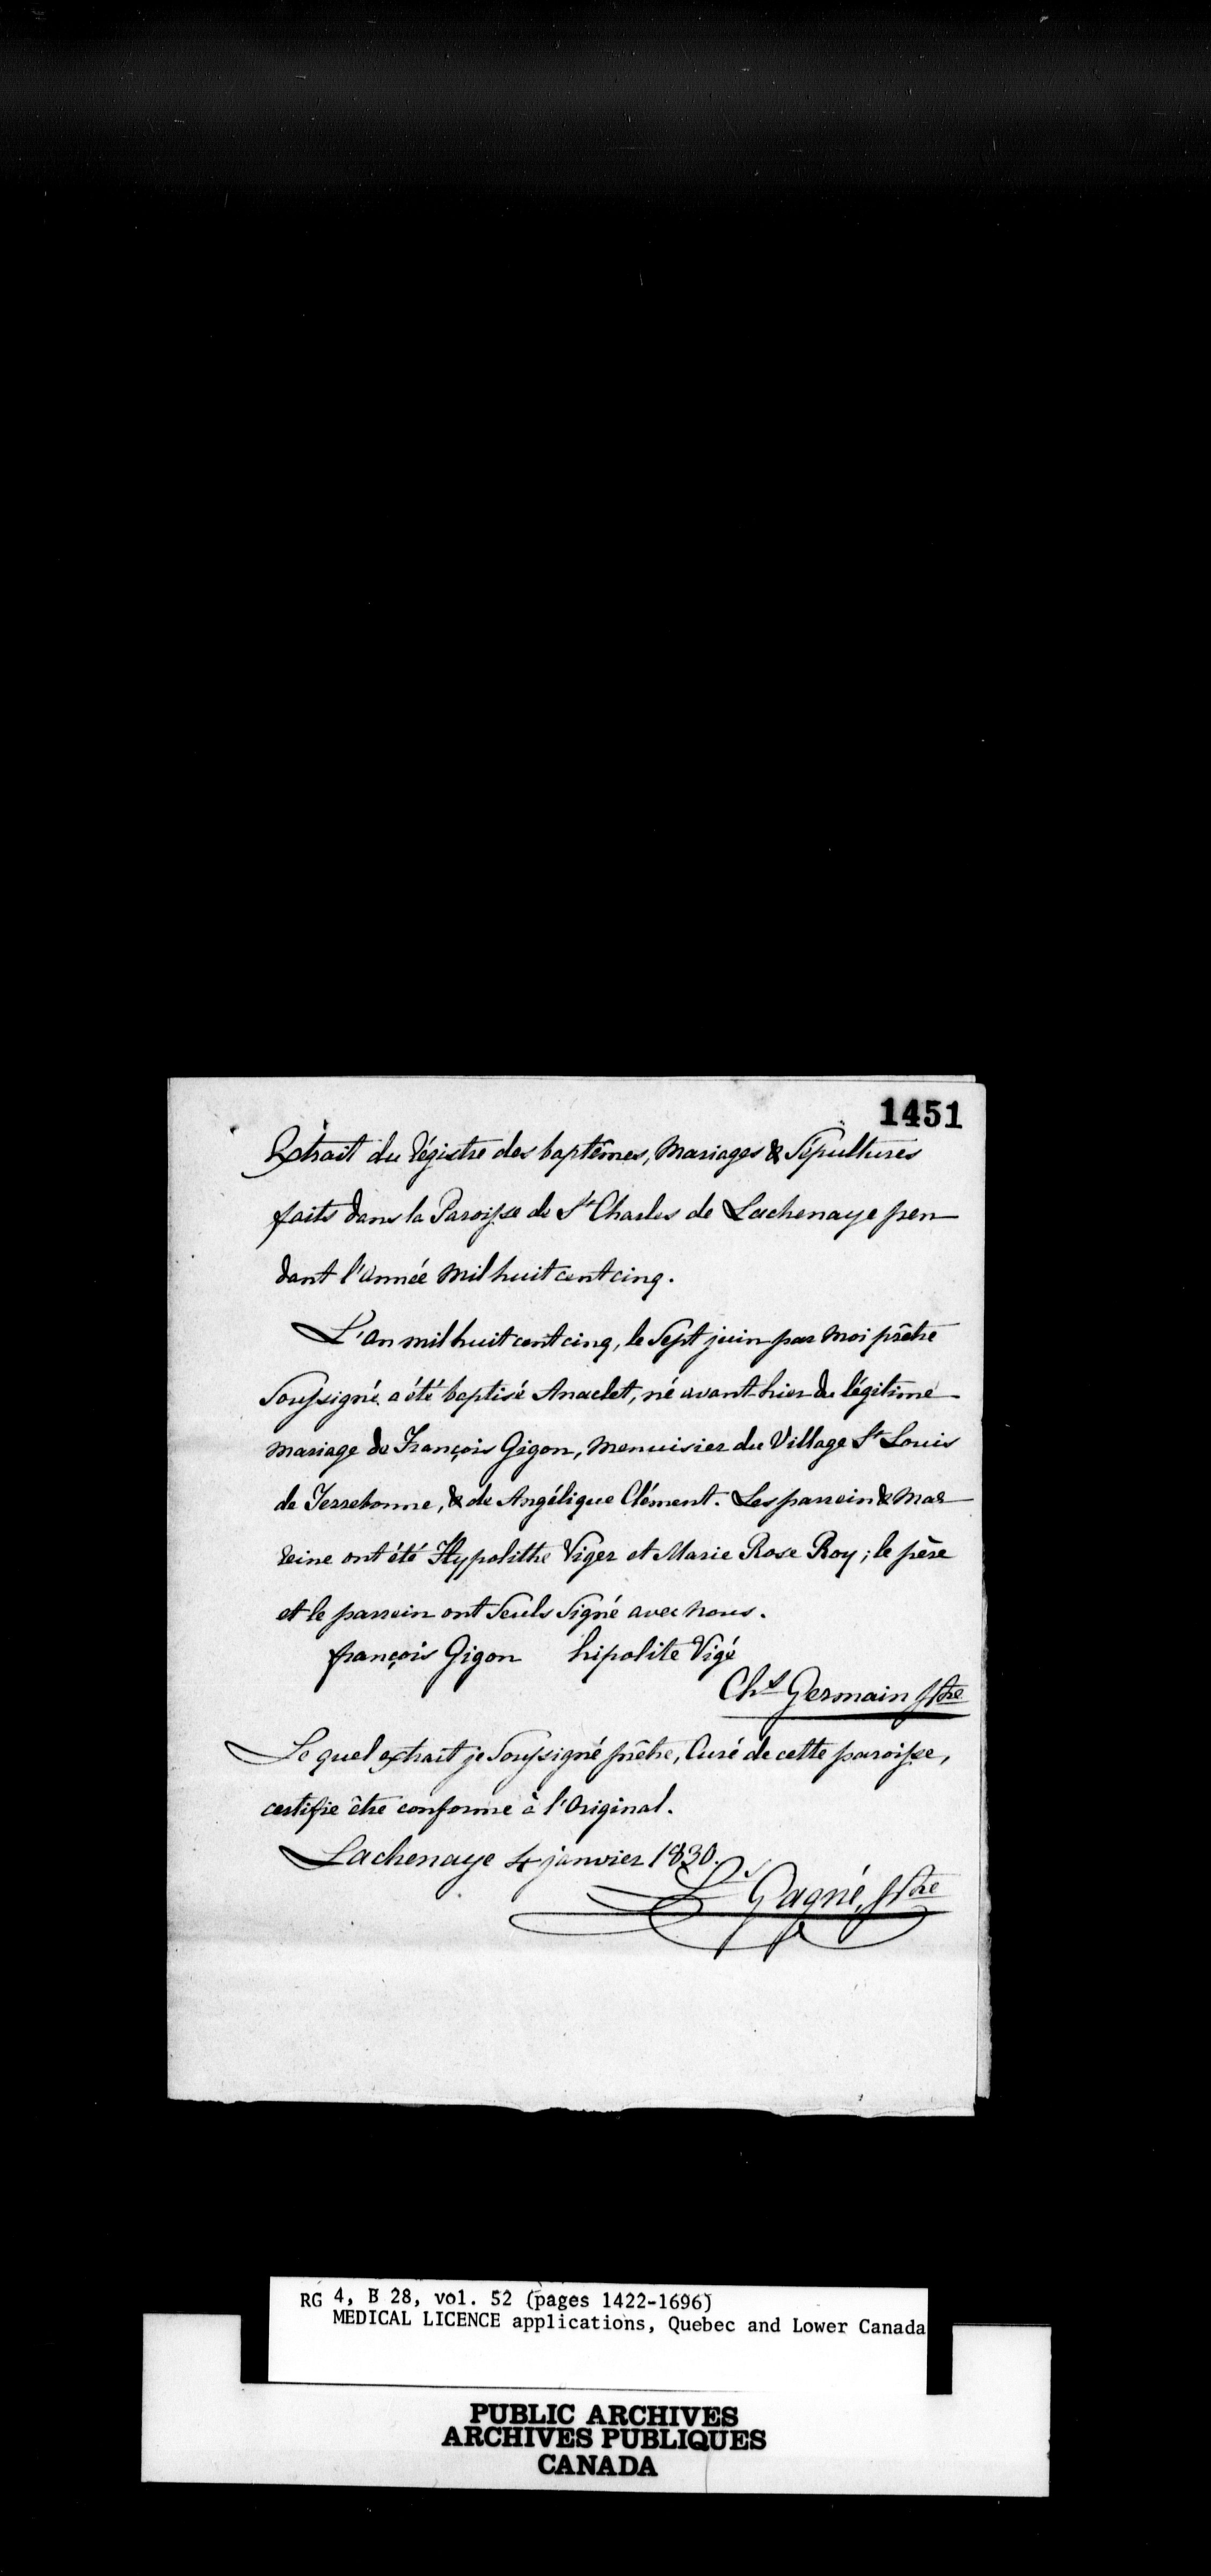 1451
Extrait du régistre des baptêmes, Mariages & Sépultures
faits dans la Paroisse de St Charles de Lachenaye pen
dant l'année mil huit cent cinq.
L'an mil huit cent cinq, le Sept juin par moi prêtre
Soussigné a été baptisé Anaclet, né avant-hier du légitime
mariage de François Gigon, menuisier du Village St Louis
de Terrebonne, & de Angélique Clément. Les parrein & Mar
reine ont été Hypolithe Viger et Marie Rose Roy; le père
et le parrein ont Seuls Signé avec nous.
françois Gigon hipolite Vigé
Chs Germain Ptre
Le quel extrait je Soussigné prêtre, Curé de cette paroisse,
certifie être conforme à l'Original.
Lachenaye 4 janvier 1830.
Ls Gagné, Ptre
RG 4, B 28, vol. 52 (pages 1422-1696)
MEDICAL LICENCE applications, Quebec and Lower Canada
PUBLIC ARCHIVES
ARCHIVES PUBLIQUES
CANADA